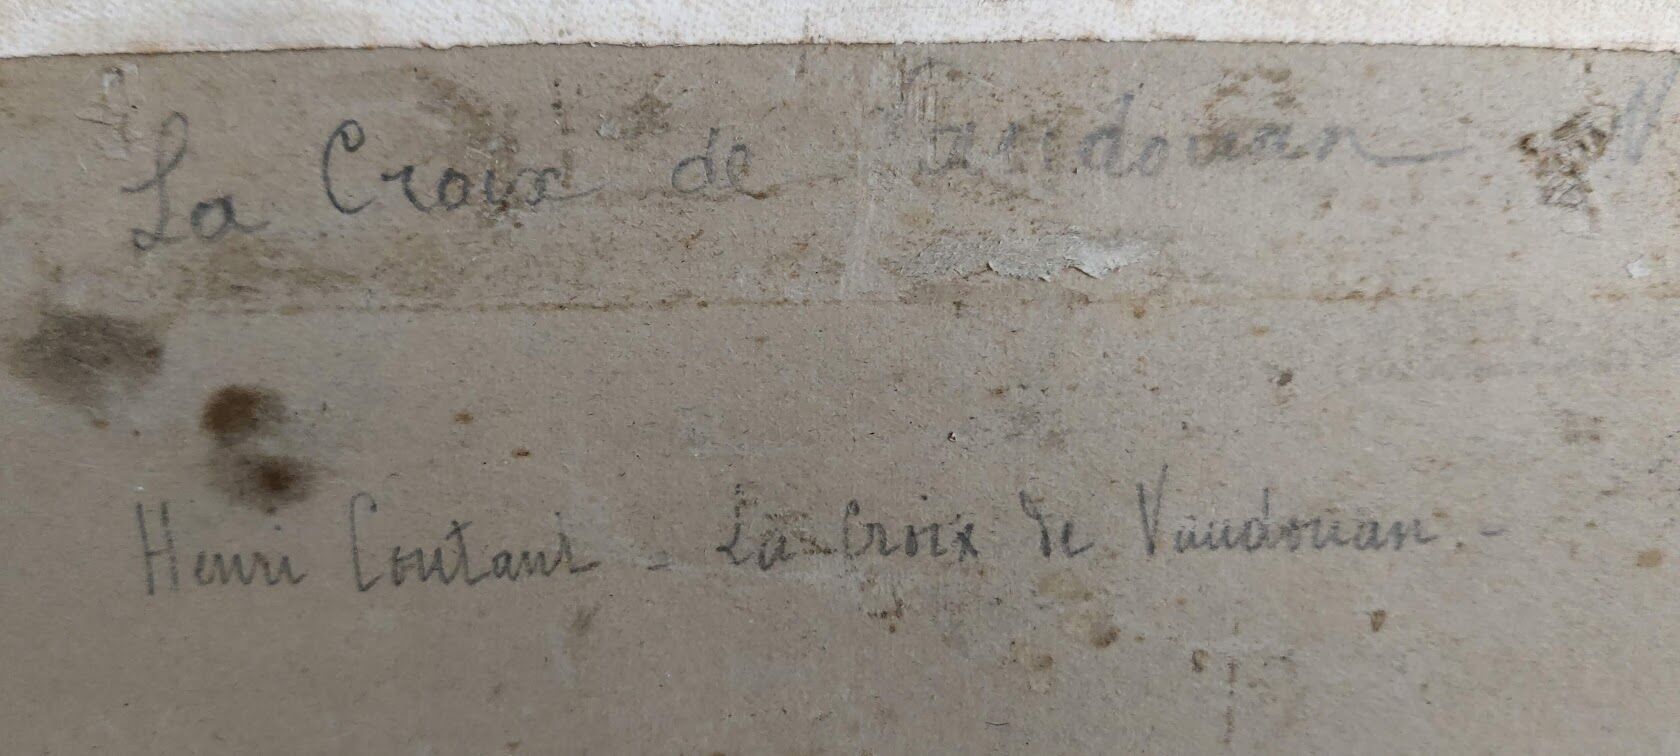 La Croix de Vaudouan
Henri Coutant - La Croix de Vaudouan. -